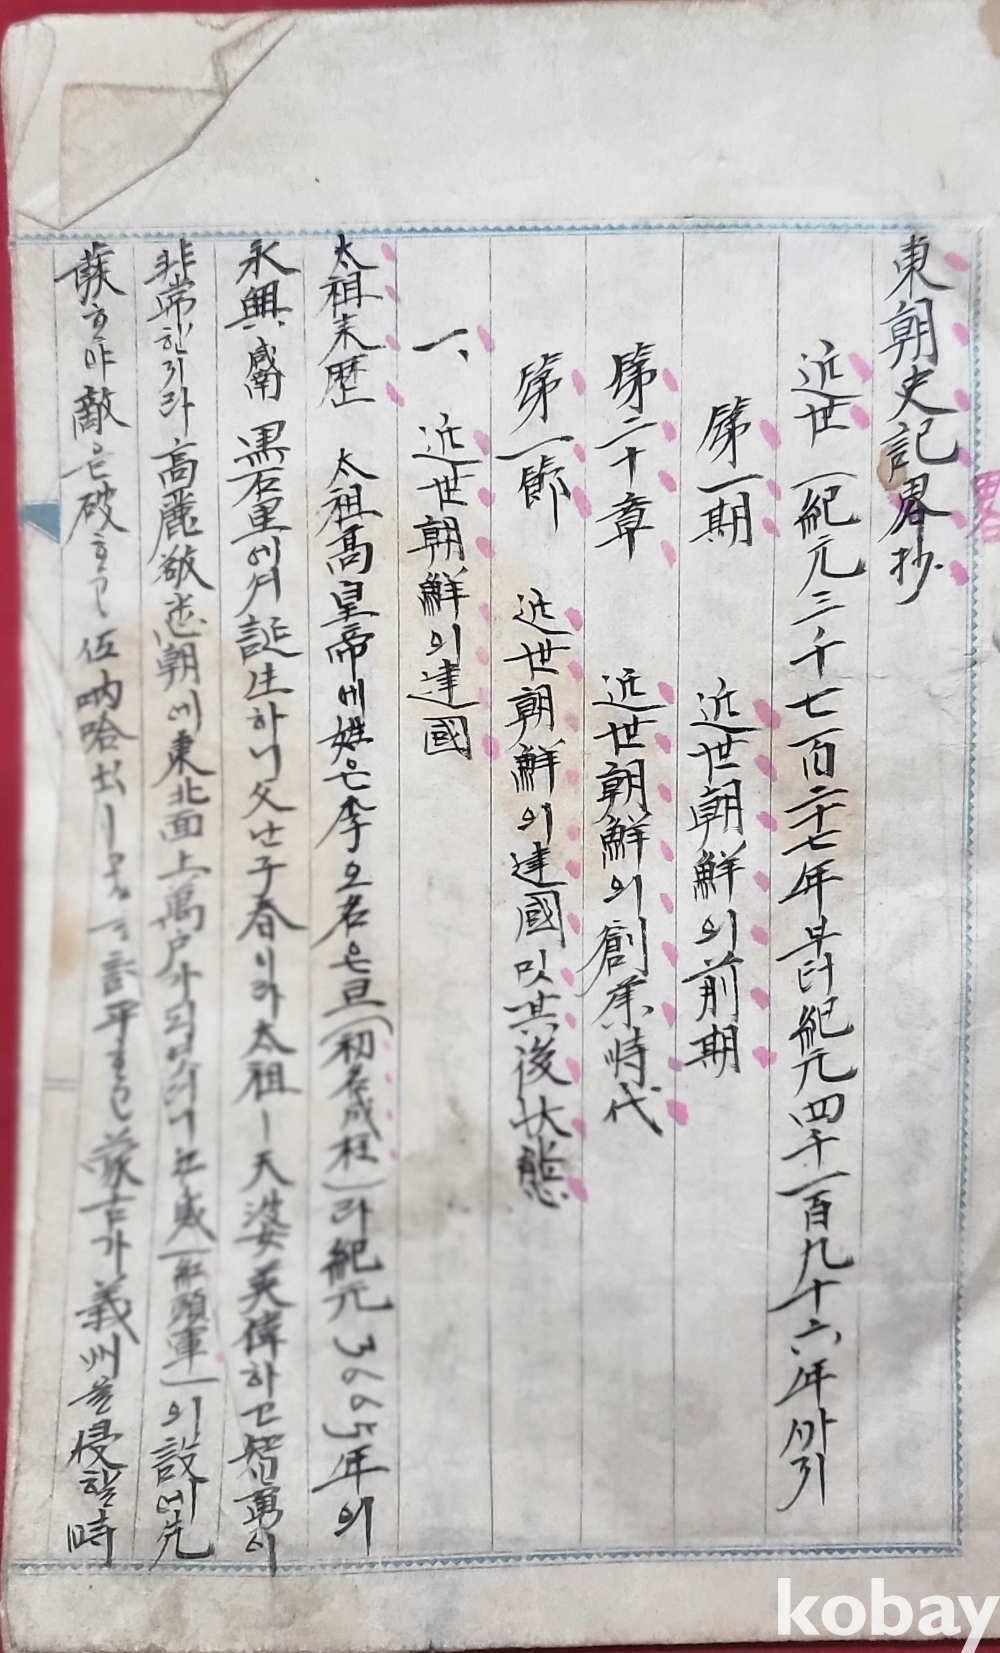 東朝史記畧抄
近世 (紀元三千七百二十七年부터 紀元四千一百九十六年까지
第一期 近世朝鮮의 前期
第二十章 近世朝鮮의 創業時代
第一節 近世朝鮮의 建國 및 其後狀態
一、 近世朝鮮의 建國
太祖来歴 太祖高皇帝에 姓은 李오 名은 旦(初名成桂)라 紀元3665年의
永興 咸南 黒石里에서 誕生하니 父난 子春이라 太祖ㅣ 天姿英偉하고 智勇이
非常한지라 高麗 恭愍朝에 東北面上萬户가 되 (紅頭軍)의 에
하야 敵을 破하고 呐哈出 計平하고 蒙古가 義州을 侵할 時
kobay